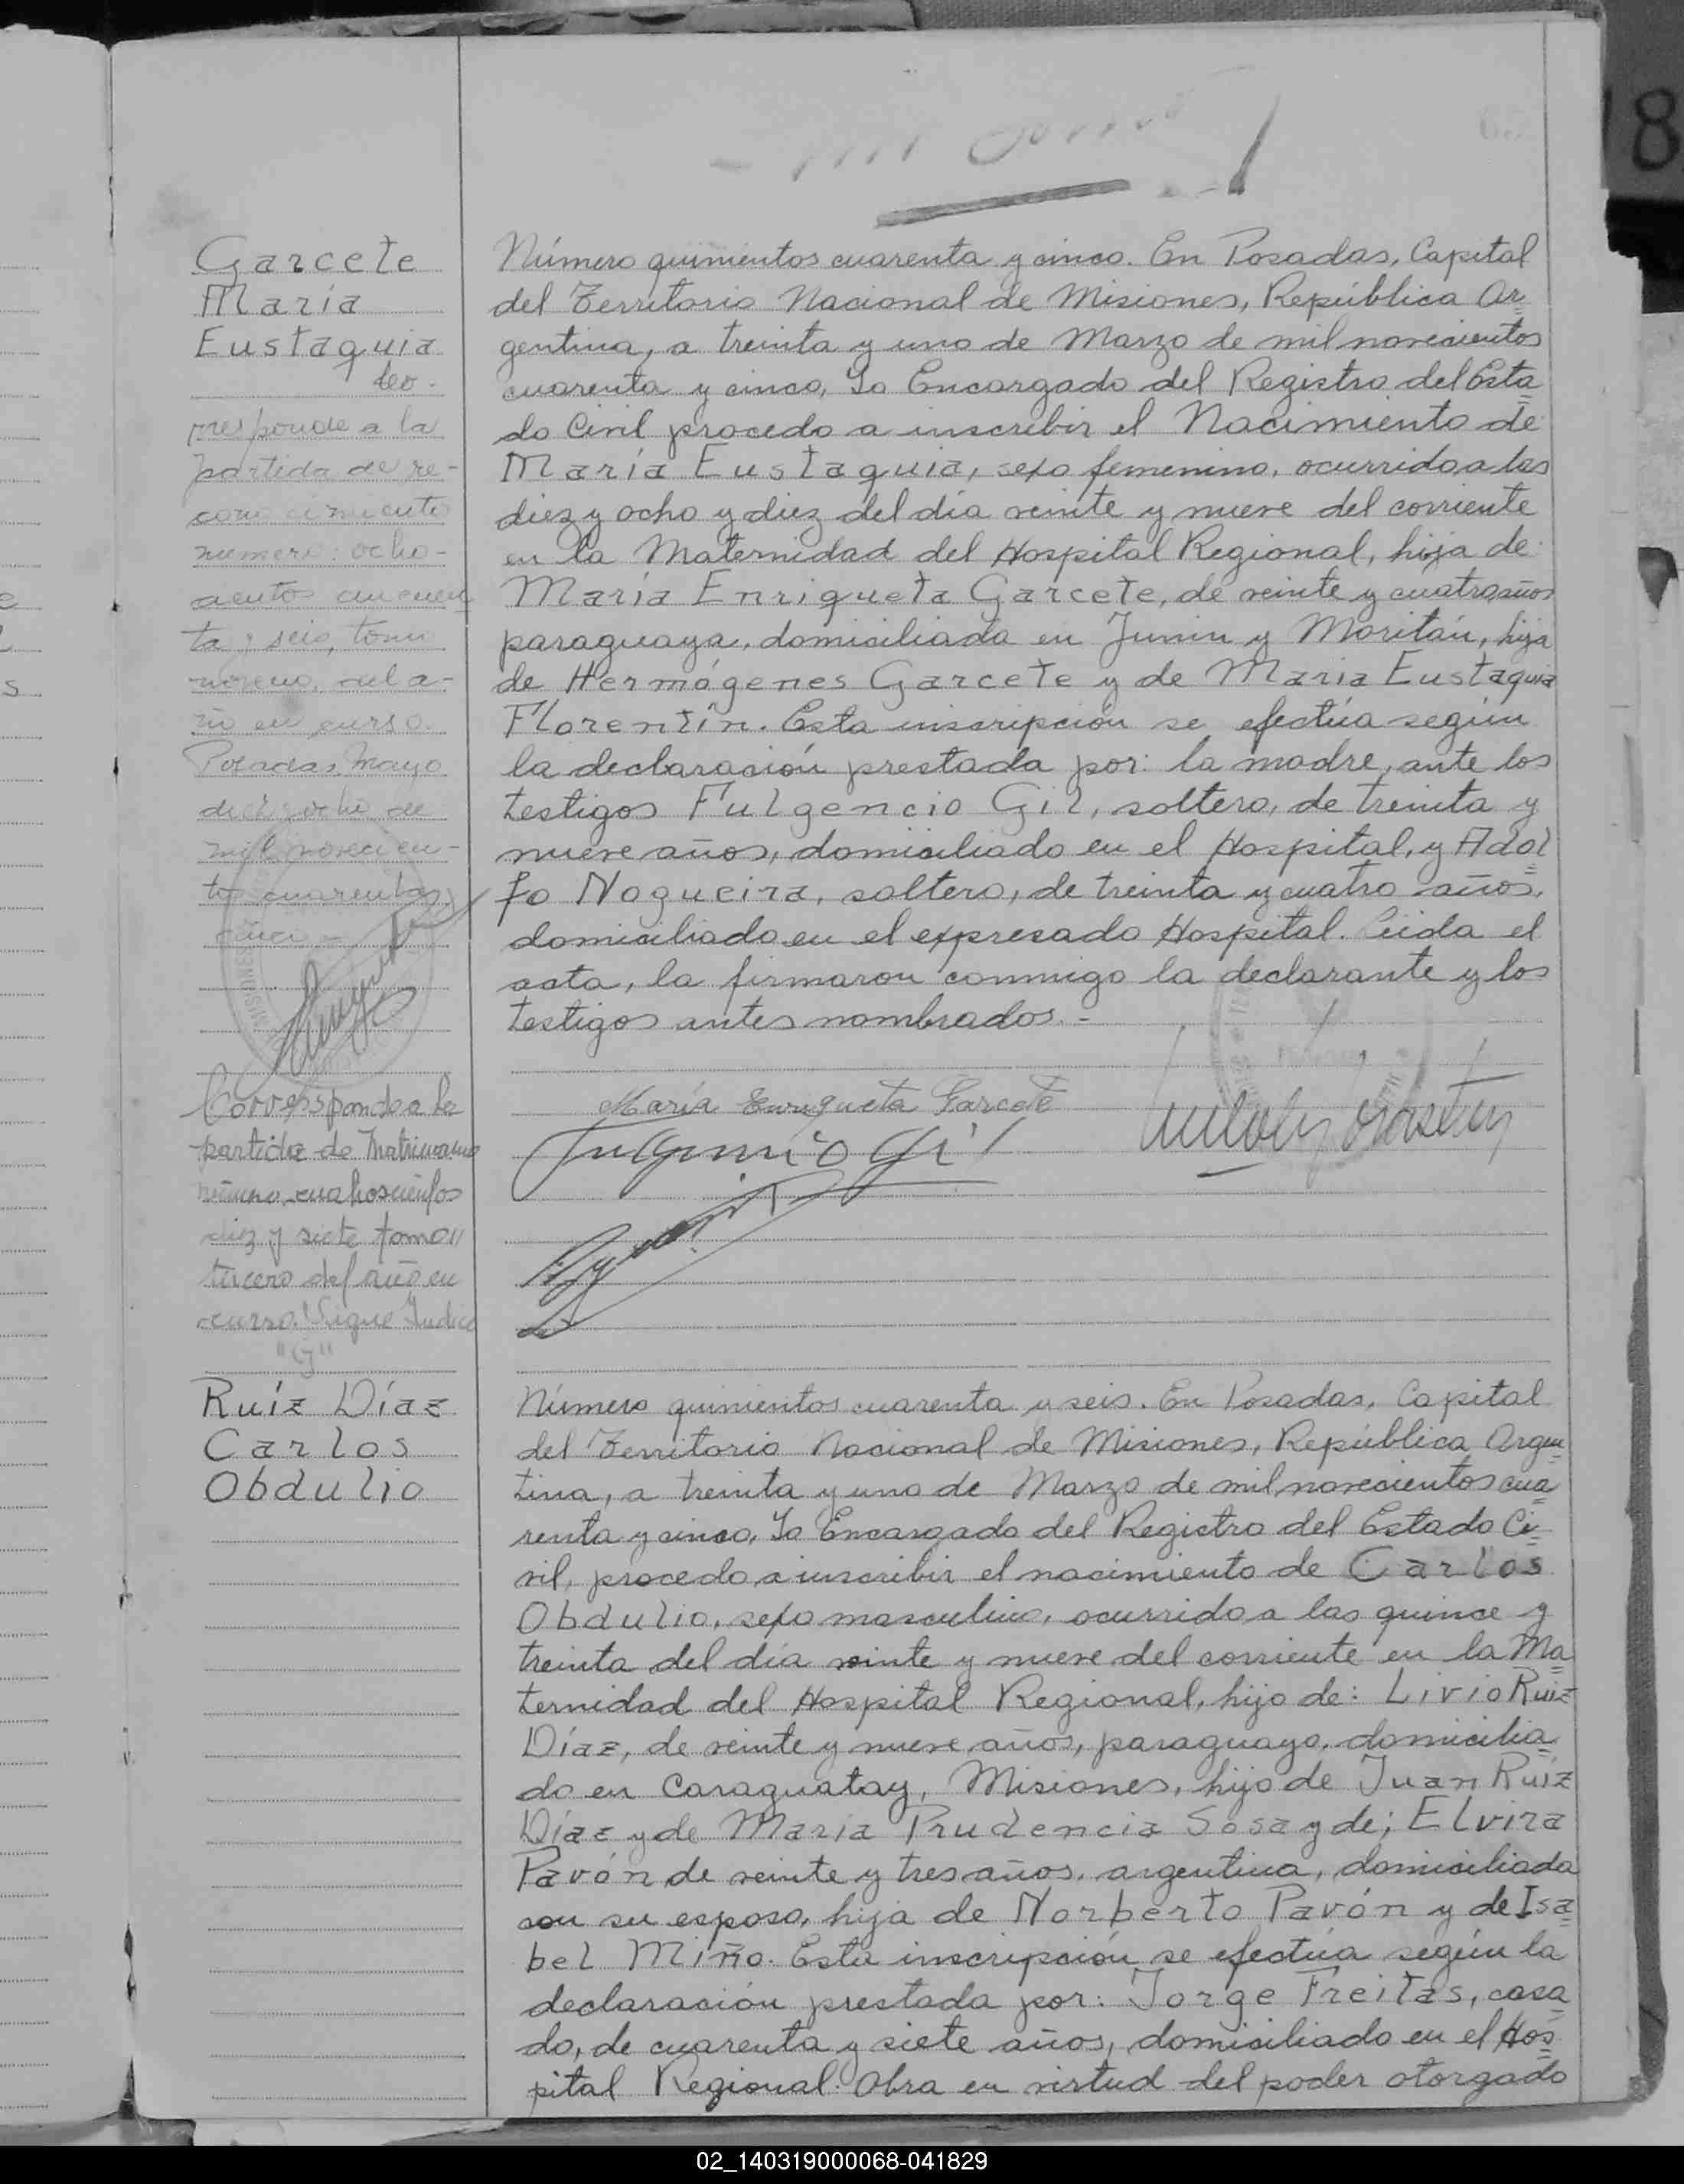 8
Garcete
María
Eustaquia
Co-
rresponde a la
partida de re-
conocimiento
número: ocho-
cientos cincuen
ta y seis, tomo
noveno, del a-
ño en curso.
Posadas, Mayo
diez y ocho de
mil novecien-
tos cuarenta y
cinco -
Número quinientos cuarenta y cinco. En Posadas, Capital
del Territorio Nacional de Misiones, República Ar
gentina, a treinta y uno de Marzo de mil novecientos
cuarenta y cinco, Yo Encargado del Registro del Esta
do Civil procedo a inscribir el Nacimiento de
María Eustaquia, sexo femenino, ocurrido a las
diez y ocho y diez del día veinte y nueve del corriente
en la Maternidad del Hospital Regional, hija de
María Enriqueta Garcete, de veinte y cuatro años
paraguaya, domiciliada en Junin y Moritán, hija
de Hermógenes Garcete y de Maria Eustaquia
Florentín. Esta inscripción se efectúa según
la declaración prestada por: la madre, ante los
testigos Fulgencio Gil, soltero, de treinta y
nueve años, domiciliado en el Hospital, y Adol
fo Nogueira, soltero, de treinta y cuatro años,
domiciliado en el expresado Hospital. Leída el
acta, la firmaron conmigo la declarante y los
testigos antes nombrados. -
María Enriqueta Garcete
Fulgencio Gil
Corresponde a la
partida de Matrimonio
número cuatrocientos
diez y siete tomo
tercero del año en
curso. Sigue Indice
"G"
Ruíz Díaz
Carlos
Obdulio
Número quinientos cuarenta y seis. En Posadas, Capital
del Territorio Nacional de Misiones, República Argen
tina, a treinta y uno de Marzo de mil novecientos cua
renta y cinco, Yo Encargado del Registro del Estado Ci
vil, procedo a inscribir el nacimiento de Carlos
Obdulio, sexo masculino, ocurrido a las quince y
treinta del día veinte y nueve del corriente en la Ma
ternidad del Hospital Regional, hijo de: Livio Ruiz
Díaz, de veinte y nueve años, paraguayo, domicilia
do en Caraguatay, Misiones, hijo de Juan Ruíz
Díaz y de Maria Prudencia Sosa y de; Elvira
Pavón de veinte y tres años, argentina, domiciliada
con su esposo, hija de Norberto Pavón y de Isa
bel Miño. Esta inscripción se efectúa según la
declaración prestada por: Jorge Freitas, casa
do, de cuarenta y siete años, domiciliado en el Hos
pital Regional. Obra en virtud del poder otorgado
02_140319000068-041829